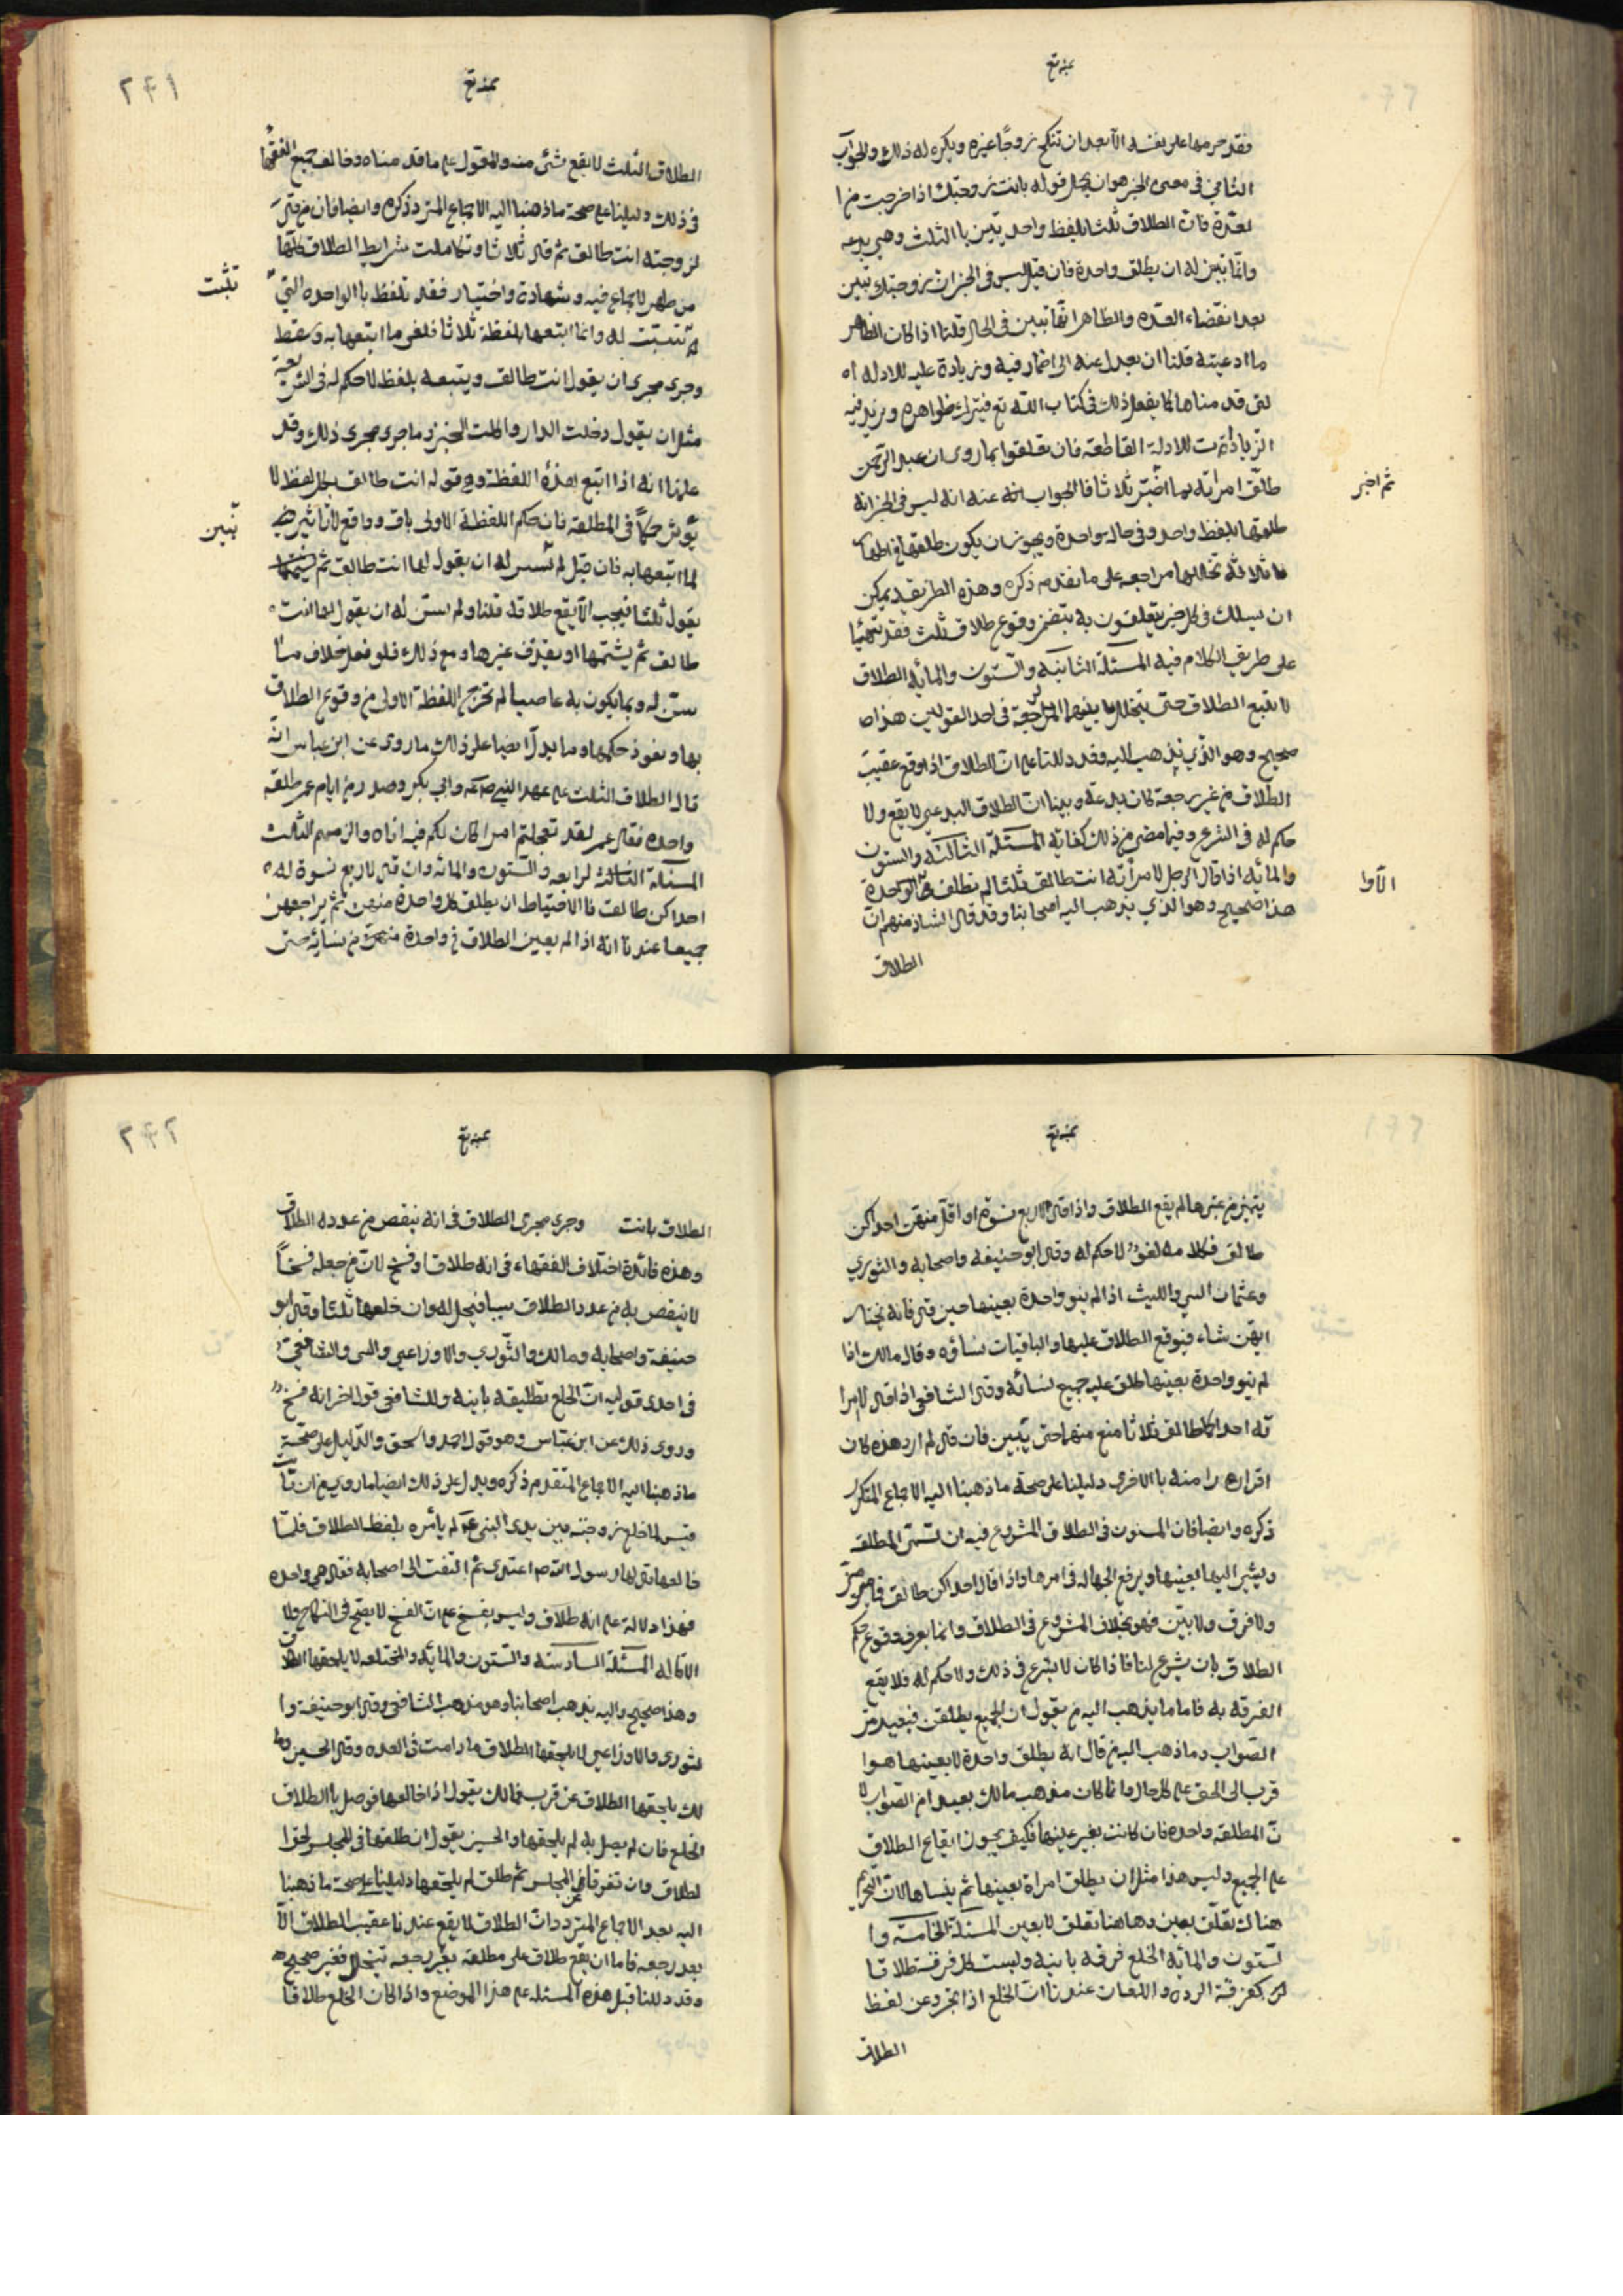 فقد حرمها على نفسه الا بعد ان تنكح زوجًا غيره ويكره له ذلك والجواب
الثاني في معنى الخبر هو ان يحمل قوله بانت زوجتك اذا خرجت من ا
لعدّة فان الطلاق ثلثا بلفظ واحد يتبين با الثلث وهي بدعه
وانّما تبين له ان يطلق واحدة فان قيل ليس في الخبر ان زوجتك تبين
بعد انقضاء العدّه والظاهر انّها تبين في الحال قلنا اذا كان الظاهر
ما ادعيته قلنا ان نعدل عنه الى اضمار فيه وزيادة عليه للادله ا
لتي قدمناها كما يفعل ذلك في كتاب الله تع فيترك ظواهره ويزيد فيه
الزيادات للادلة القاطعة فان تعلقوا بما روى ان عبد الرحمن
طلّق امراته تماضر ثلاثا فالجواب انه عنه انه ليس في الخبر انه
طلقها بلفظ واحد وفي حالة واحدة ويجوز ان يكون طلقها في اطهار
ثلاثة تخللها مراجعه على ما تقدم ذكره وهذه الطريقه يمكن
ان يسلك في كل خبر يتعلقون به يتضمن وقوع طلاق ثلث فقد نبهنا
على طريق الكلام فيه المسئلة الثانيه والستون والمائه الطلاق
لا يتبع الطلاق حتى يتخلل بينهما المراجعة في احد القولين هذا
صحيح وهو الذي نذهب اليه وقد دللنا على ان الطلاق اذا وقع عقيب
الطلاق من غير رجعة كان بدعة وبينا ان الطلاق البدعي لا يقع ولا
حكم له في الشرع وفيما مضى من ذلك كفاية المسئلة الثالثة والستون
والمائه اذا قال الرجل لامرأته انت طالق ثلثا لم تطلق الا واحدة
هذا صحيح وهو الذي يذهب اليه اصحابنا وقد قال الشاذ منهم ان
الطلاق
ثم اخبر
الاوا
٢٤١
الطلاق الثلث لا يقع شئ منه والمعول على ما قدمناه وخالف جميع الفقها
في ذلك دليلنا على صحة ما ذهبنا اليه الاجماع المتردد ذكره وايضا فان من قال
لزوجته انت طالق ثم قال ثلاثا وتكاملت شرايط الطلاق كلها
من طهر لا جماع فيه وشهادة واختيار فقد تلفظ با الواحده التي
تثبت له وانما اتبعها بلفظة ثلاثا فلغى ما اتبعها به وسقط
وجرى مجرى ان يقول انت طالق ويتبعه بلفظ لا حكم له في الشريعة
مثل ان يقول دخلت الدار واكلت الخبز وما جرى مجرى ذلك وقد
علمنا انه اذا اتبع هذه اللفظة وهي قوله انت طالق بكل لفظ لا
يؤثر حكمًا في المطلقة فان حكم اللفظة الاولى باق وواقع لا تاثير
لما اتبعها به فان قيل لم يُسن له ان يقول لها انت طالق ثم
يقول ثلثا فيجب الا يقع طلاقه قلنا ولم يسن له ان يقول لها انت
طالق ثم يشتمها او يقذف غيرها ومع ذلك فلو فعل خلاف ما
سن له وبما يكون به عاصيا لم تخرج اللفظة الاولى من وقوع الطلاق
بها ونفوذ حكمها ومما يدل ايضا على ذلك ما روى عن ابن عباس انه
قال الطلاق الثلث على عهد النبي ص وابي بكر وصدر من ايام عمر طلقه
واحده فقال عمر لقد تعجلتم امرا كان لكم فيه اناه والزمهم الثلث
المسئلة الرابعه والستون والمائه وان قال لاربع نسوة له
احداكن طالق فالاحتياط ان يطلق كل واحدة منهن ثم يراجعهن
جميعا عندنا انه اذا لم يعين الطلاق في واحدة منهن من نسائه حتى
تثبت
تبين
يتميز من غيرها لم يقع الطلاق واذا قال لاربع نسوة او اقل منهن احداكن
طالق فكلامه لغو لا حكم له وقال ابو حنيفه واصحابه والثوري
وعثمان البتي والليث اذا لم ينو واحدة بعينها حين قال فانه يختار
ايهن شاء فيوقع الطلاق عليها والباقيات نساؤه وقال مالك اذا
لم ينو واحدة بعينها طلق عليه جميع نسائه وقال الشافعي اذا قال لامرا
ته احداكما طالق ثلاثا منع منهما حتى يبين فان قال لم ارد هذه كان
اقرارا منه با الاخرى دليلنا على صحة ما ذهبنا اليه الاجماع المتكرر
ذكره وايضا فان المسنون في الطلاق المشروع فيه ان تسمى المطلقه
ويشير اليها بعينها ويرفع الجهاله في امرها واذا قال احداكن طالق فما
ولا فرق ولا بين فهو بخلاف المشروع في الطلاق وانما يعرف وقوع حكم
الطلاق بان يشرع لنا فاذا كان لا شرع في ذلك ولا حكم له فلا يقع
الفرقه به فاما ما يذهب اليه من يقول ان الجميع يطلقن فبعيد من
الصواب وما ذهب اليه من قال انه يطلق واحدة لا بعينها هو ا
قرب الى الحق على كل حال وانما كان مذهب مالك بعيدا من الصواب لا
ن المطلقه واحده فان كانت بغير عينها فكيف يجوز ايقاع الطلاق
على الجميع وليس هذا مثل ان يطلق امراة بعينها ثم ينساها لان التحريم
هناك تعلّق بعين وهاهنا تعلق لا بعين المسئلة الخامسة وا
لستون والمائه الخلع فرقه باينه وليست كل فرقة طلاقا
كفرقة الرده واللعان عندنا ان الخلع اذا تجرد عن لفظ
الطلاق
٢٤٢
الطلاق بانت وجرى مجرى الطلاق في انه ينقص من عدده الطلاق
وهذه فائدة اختلاف الفقهاء في انه طلاق او فسخ لان من جعله فسخًا
لا ينقص به من عدد الطلاق شيئا فيحل له وان خلعها ثلثا وقال ابو
حنيفة واصحابه ومالك والثوري والاوزاعي والبتي والشافعي
في احدى قوليه ان الخلع تطليقه باينه وللشافعي قول اخر انه فسخ
وروى ذلك عن ابن عباس وهو قول احمد واسحق والدليل على صحة
ما ذهبنا اليه الاجماع المتقدم ذكره ويدل على ذلك ايضا ما روى من ان ثابت
قيس لما خلع زوجته بين يدي النبي لم يأمره بلفظ الطلاق فلما
خالعها قال لها رسول الله ص اعتدي ثم التفت الى اصحابه فقال هي واحده
فهذا دلالة على انه طلاق وليس بفسخ على ان الفسخ لا يصح في النكاح ولا
الاقاله المسئله السادسه والستون والمائه والمختلعه لا يلحقها الطلاق
وهذا صحيح واليه يذهب اصحابنا وهو مذهب الشافعي وقال ابو حنيفة وا
لثوري والاوزاعي يلحقها الطلاق ما دامت في العده وقال الحسن وما
لك يلحقها الطلاق عن قرب فمالك يقول اذا خالعها فوصل با الطلاق
الخلع فان لم يصل به لم يلحقها والحسن يقول ان طلقها في المجلس لحقها ا
لطلاق وان تفرقا عن المجلس ثم طلق لم يلحقها دليلنا على صحة ما ذهبنا
اليه بعد الاجماع المتردد ان الطلاق لا يقع عندنا عقيب الطلاق الا
بعد رجعه فاما ان يقع طلاق على مطلقه بغير رجعه تتخلل فغير صحيح
وقد دللنا قبل هذه المسئله على هذا الموضع واذا كان الخلع طلاقا